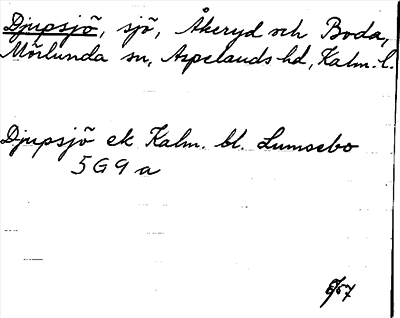 Djupsjö, sjö, Åkeryd och Boda,
Mörlunda sn, Aspelands hd, Kalm. l.
Djupsjö ek Kalm. bl. Lumsebo
5G9a